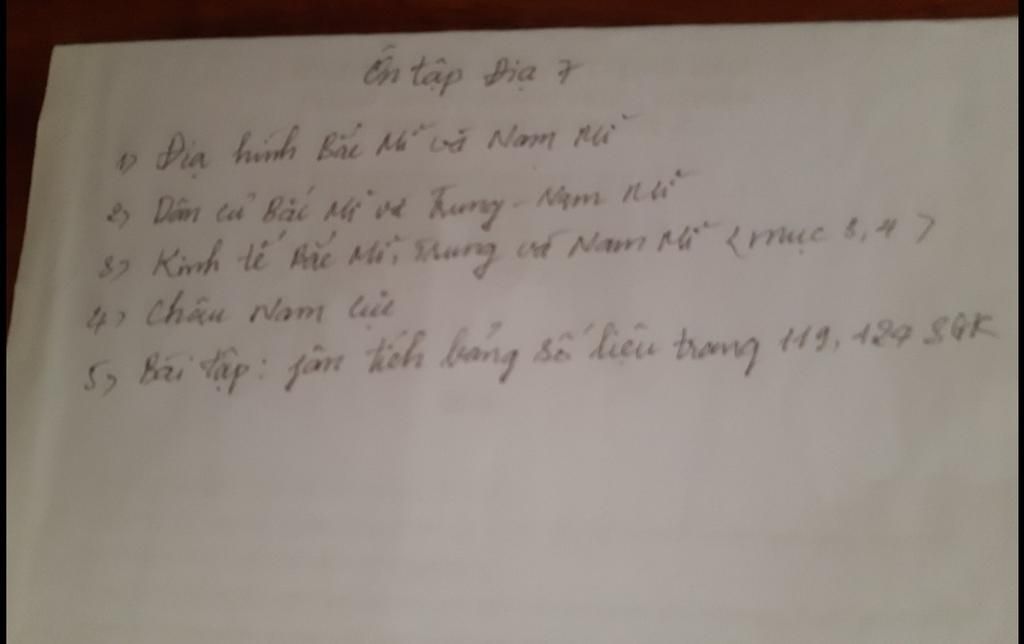 Ôn tập Địa 7
1) Địa hình Bắc Mĩ và Nam Mĩ
2) Dân cư Bắc Mĩ và Trung - Nam Mĩ
3) Kinh tế Bắc Mĩ, Trung và Nam Mĩ (mục 3, 4)
4) Châu Nam Cực
5) Bài tập: fân tích bảng số liệu trang 119, 124 SGK